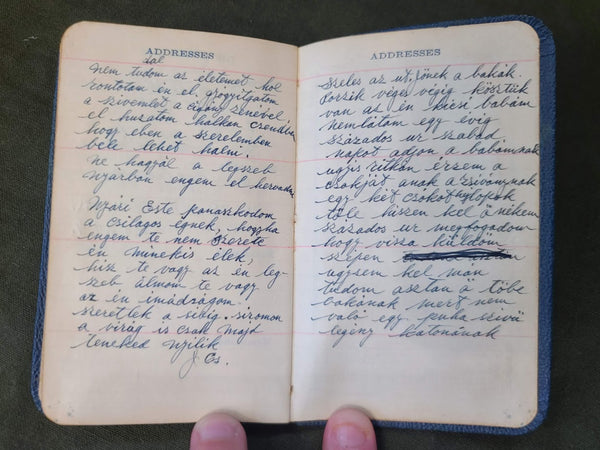 ADDRESSES
dal
Nem tudom az életemet hol
rontotam én el, gyógyitgatom
a szivemet a cigány zenével,
el huzatom halkan csendben
hogy eben a szerelemben
bele lehet halni.
ne hagyjál a legszeb
nyárban engem el hervadni
Nyári Este panaszkodom
a csilagos égnek, hogyha
engem te nem szeretz
én minekis élek,
hisz te vagy az én leg-
szeb álmom te vagy
az én imádságom.
szeretlek a sirig siromon
a virág is csak majd
teneked nyilik
J. Cs.
ADDRESSES
Széles az ut, jönek a bakák.
Sorszik véges végig köztük
van az én kicsi babám
nemlátam egy évig
százados ur szabad
napot adjon a babámnak
ugyis ritkán érzem a
csokját anak a zsiványnak
egy két csokot ha lopok
töle hiszen kel a nékem
százados ur megfogadom
hogy vissza küldom
szépen
ugysem kel mán
tudom asztan ö töbe
bakának mert nem
való egy puha szivü
legény katonának